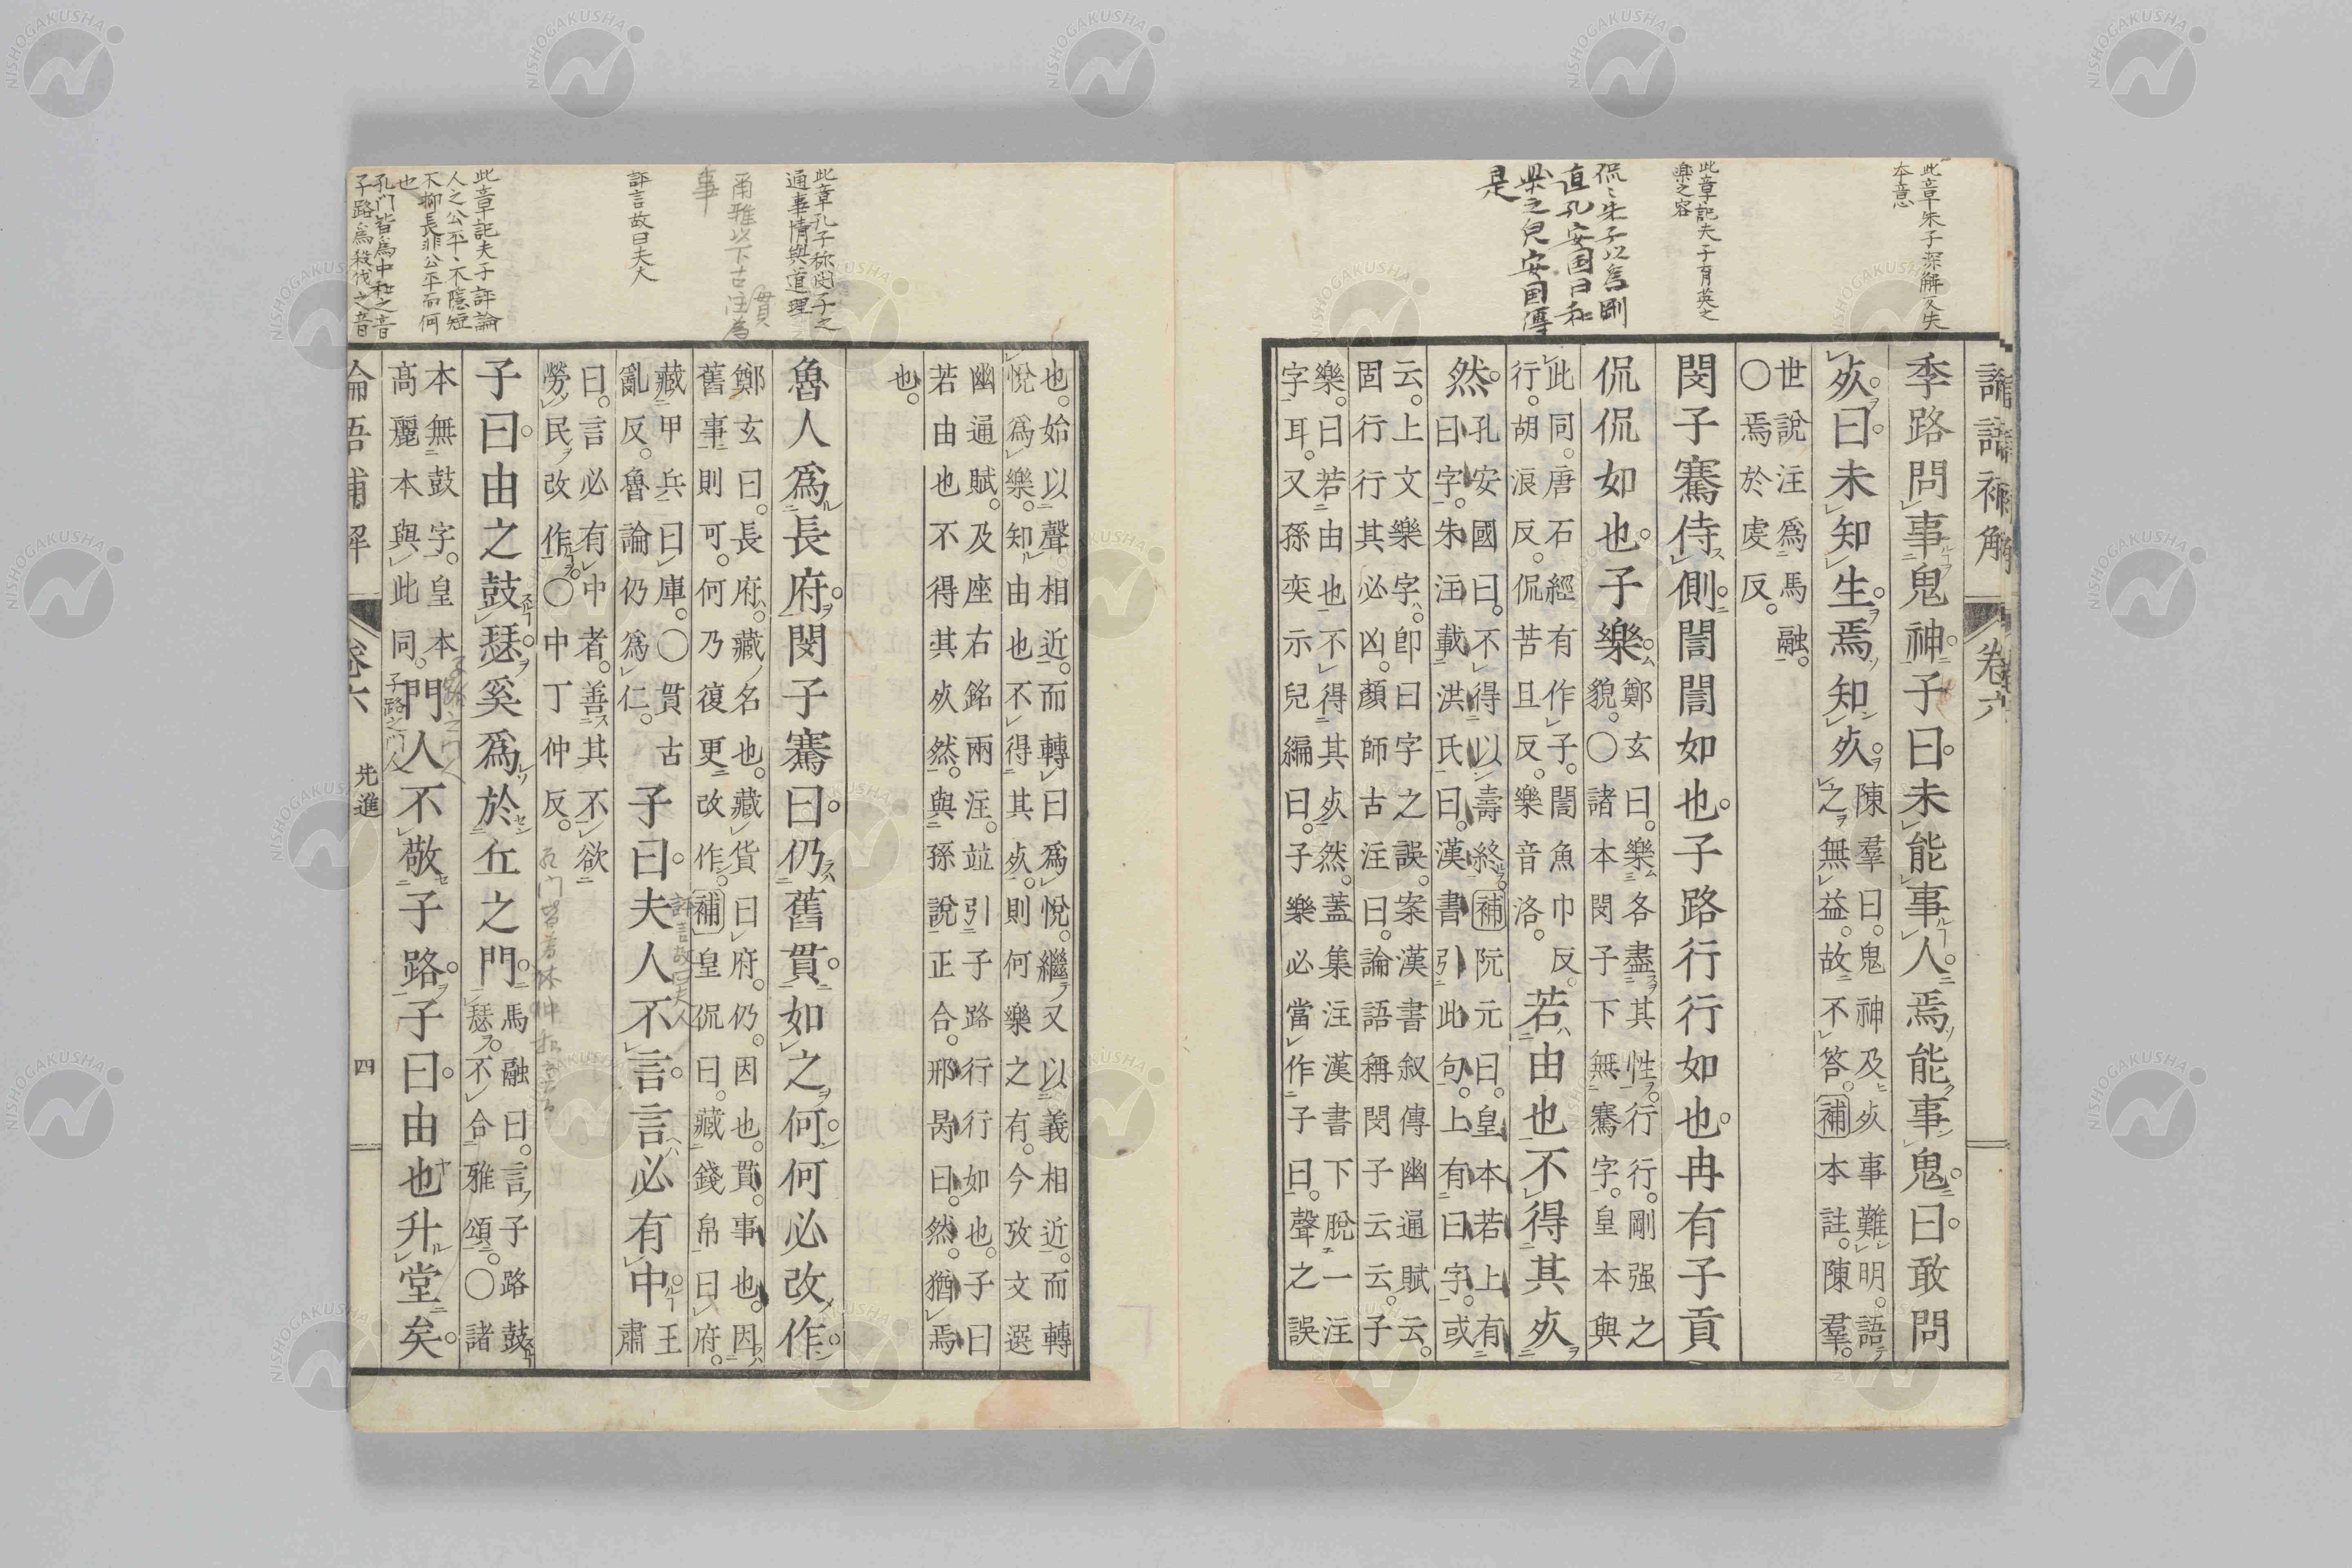 論語補解 卷六
季路問事鬼神子曰未能事人焉能事鬼曰敢問
死曰未知生焉知死
陳羣曰鬼神及死事難明語
之無益故不答補本註陳羣
世說注爲馬融
〇焉於虔反
閔子騫侍側誾誾如也子路行行如也冉有子貢
侃侃如也子樂
鄭玄曰樂各盡其性行行剛强之
貌〇諸本閔子下無騫字皇本與
此同唐石經有作子誾魚巾反
行胡浪反侃苦且反樂音洛
若由也不得其死
然
孔安國曰不得以壽終補阮元曰皇本若上有
曰字朱注載洪氏曰漢書引此句上有曰字或
云上文樂字卽曰字之誤案漢書叙傳幽通賦云
固行行其必凶顏師古注曰論語稱閔子云云子
樂曰若由也不得其死然蓋集注漢書下脫一注
字耳又孫奕示兒編曰子樂必當作子曰聲之誤
也始以聲相近而轉曰爲悅繼又以義相近而轉
悅爲樂知由也不得其死則何樂之有今攷文選
幽通賦及座右銘兩注竝引子路行行如也子曰
若由也不得其死然與孫說正合邢昺曰然猶焉
也
魯人爲長府閔子騫曰仍舊貫如之何何必改作
鄭玄曰長府藏名也藏貨曰府仍因也貫事也因
舊事則可何乃復更改作補皇侃曰藏錢帛曰府
藏甲兵曰庫〇貫古
亂反魯論仍爲仁
子曰夫人不言言必有中
王
肅
曰言必有中者善其不欲
勞民改作〇中丁仲反
子曰由之鼓瑟奚爲於丘之門
馬融曰言子路鼓
瑟不合雅頌〇諸
本無鼓字皇本
高麗本與此同
門人不敬子路子曰由也升堂矣
論吾補解 卷六 先進 四
此章朱子深解又失
本意
此章記夫子育英之
楽之容
侃々朱子以爲剛
直孔安国曰和
楽之皃安国傳
是
此章孔子称閔子之
通事情與道理
爾雅以下古注爲
貫
事
評言故曰夫人
此章記夫子評論
人之公平不隠短
不抑長非公平而何
也
孔門皆爲中和之音
子路爲殺伐之音
評言故曰夫人
子路之門人
子路之門人
NISHOGAKUSHA